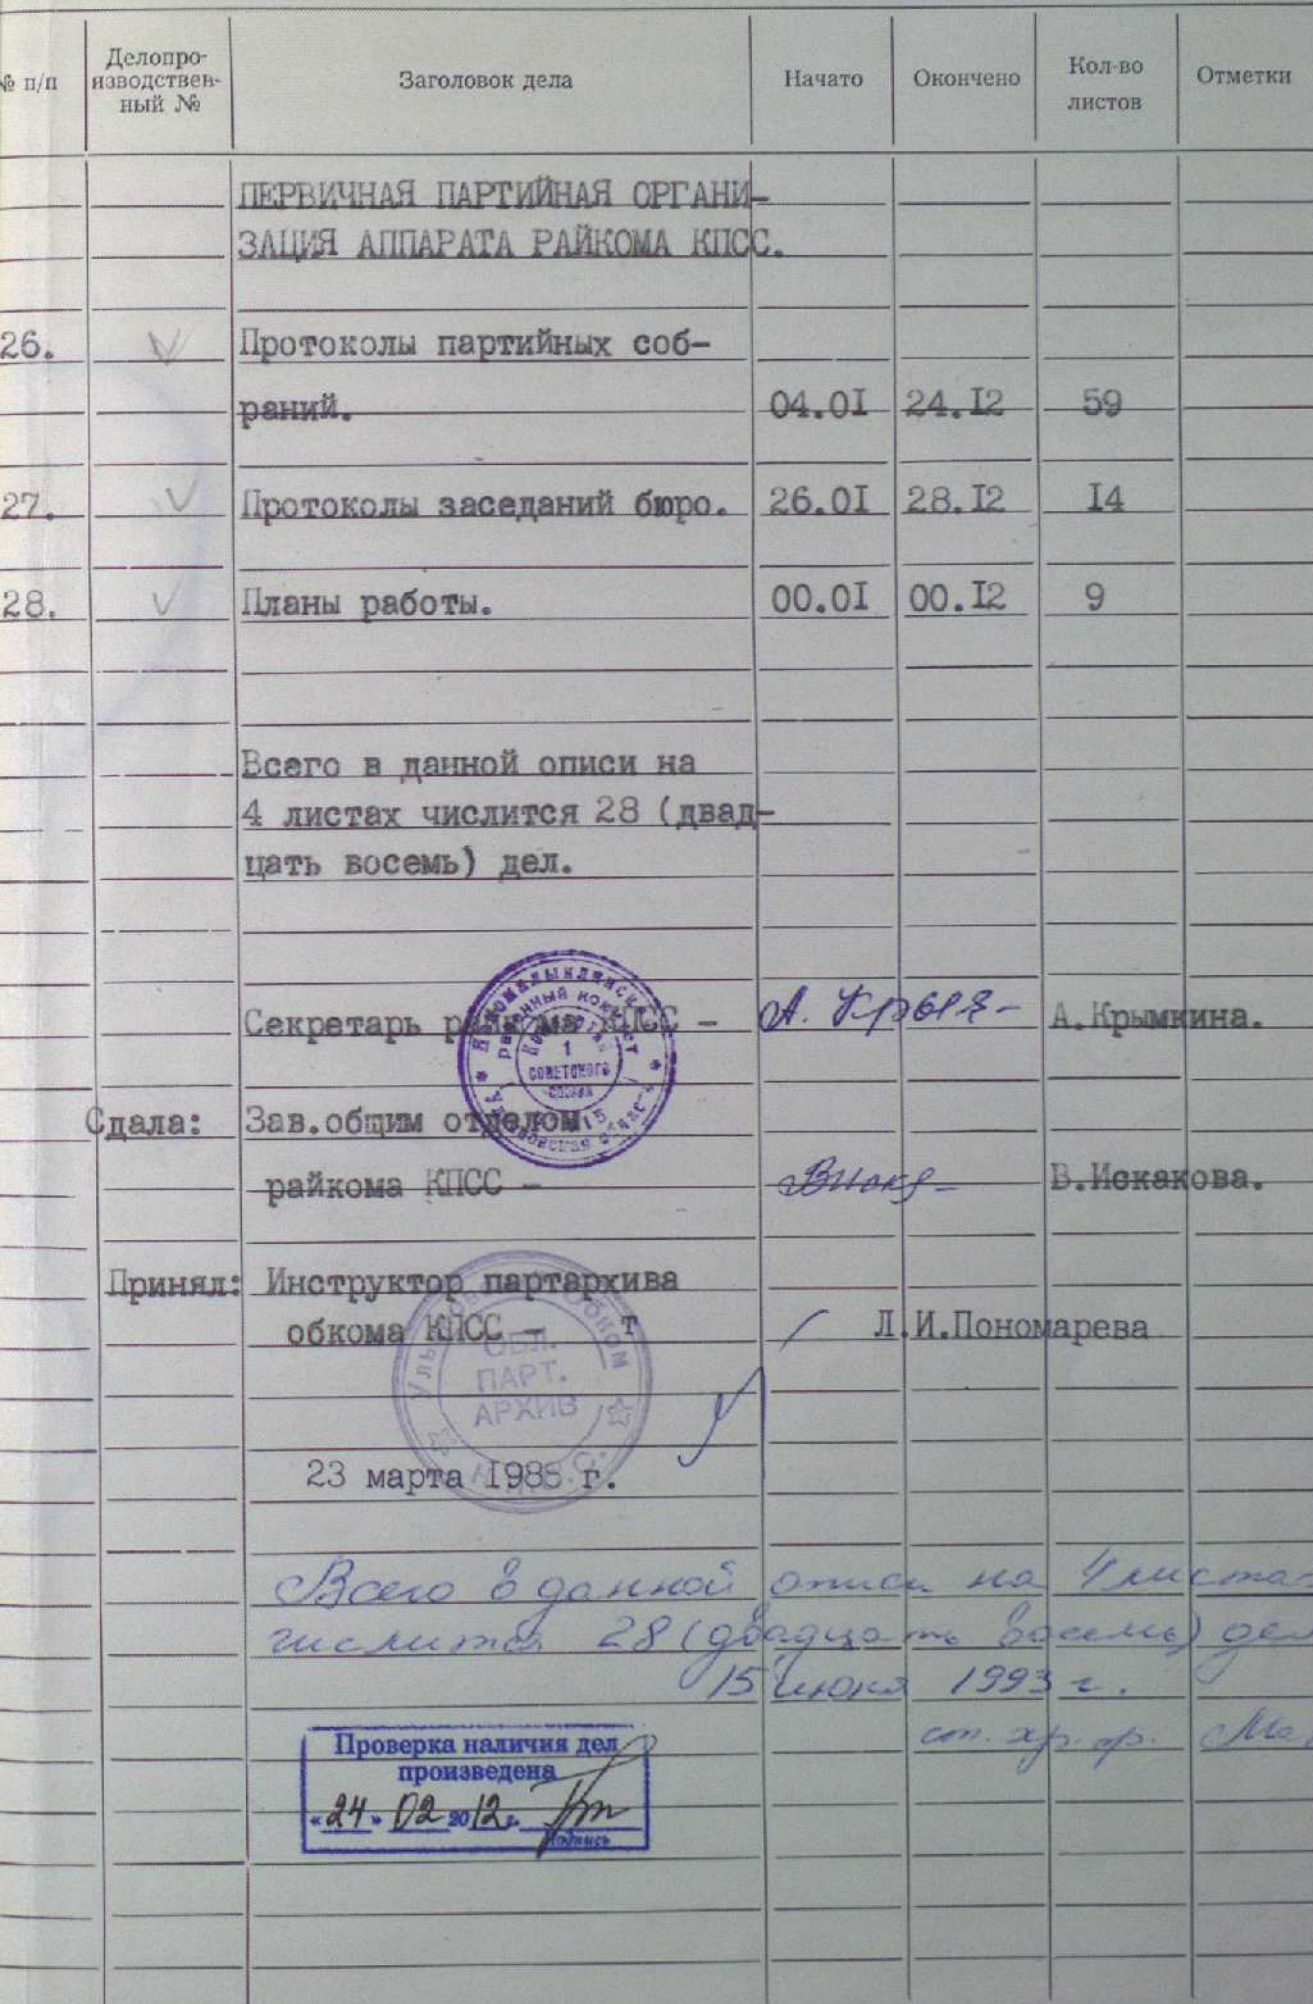 № п/п Делопро-изводствен-ный № Заголовок дела Начато Окончено Кол-во листов Отметки
ПЕРВИЧНАЯ ПАРТИЙНАЯ ОРГАНИ-
ЗАЦИЯ АППАРАТА РАЙКОМА КПСС.
26. V Протоколы партийных соб-
раний. 04.0I 24.I2 59
27. V Протоколы заседаний бюро. 26.0I 28.I2 I4
28. V Планы работы. 00.0I 00.I2 9
Всего в данной описи на
4 листах числится 28 (двад-
цать восемь) дел.
Секретарь райкома КПСС – А.Крымкина.
1
СОВЕТСКОГО
СОЮЗА
Сдала: Зав.общим отделом
райкома КПСС – В.Искакова.
Принял: Инструктор партархива
обкома КПСС – т Л.И.Пономарева
ОБЛ.
ПАРТ.
АРХИВ
23 марта I988 г.
Всего в данной описи на 4 листа
числится 28 (двадцать восемь) дел
15 июня 1993 г.
ст. хр. ф.
Проверка наличия дел
произведена
«24» 02 2012 г.
подпись